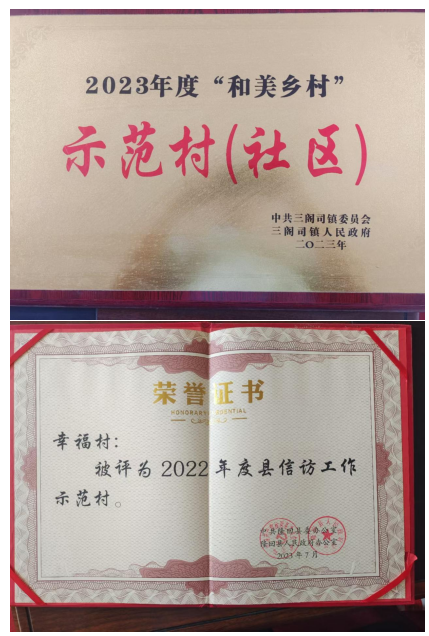 2023年度“和美乡村”
示范村(社区)
中共三阁司镇委员会
三阁司镇人民政府
二〇二三年
荣誉证书
HONORARY CREDENTIAL
幸福村：
被评为2022年度县信访工作
示范村。
中共隆回县委办公室
隆回县人民政府办公室
2023年7月